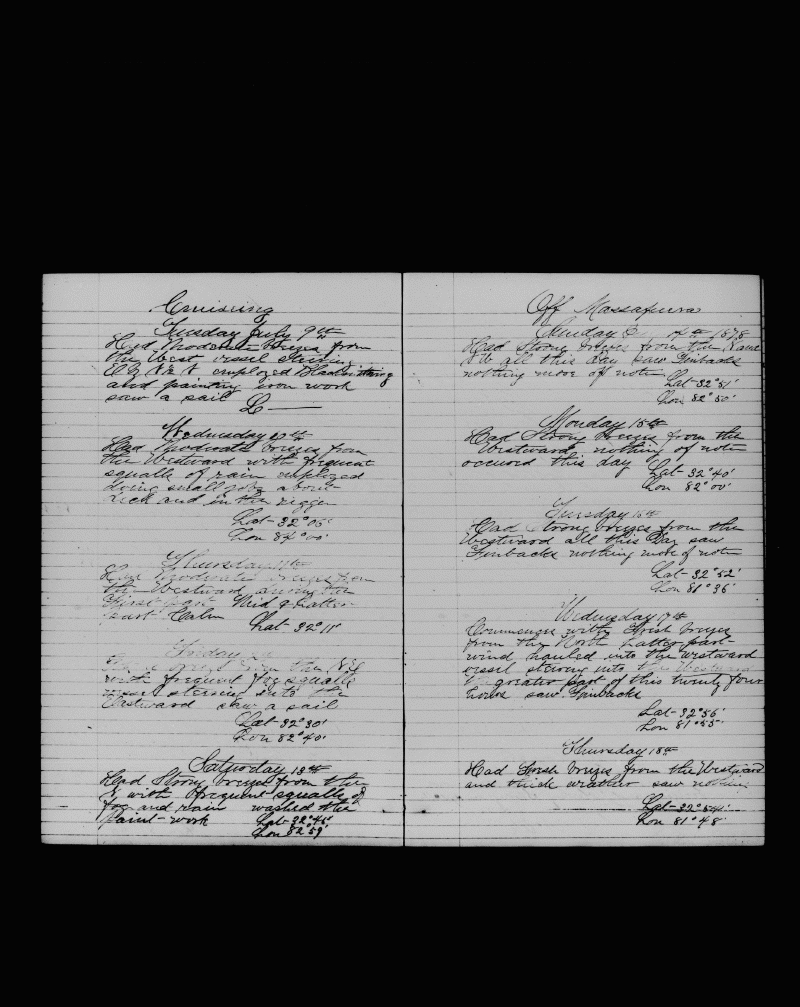 Cruising
Tuesday July 9th
Had Moderate breezes from
the West vessel steering
employed Blacksmithing
and painting iron work
saw a sail L
Wednesday 10th
Had Moderate breezes from
the Westward with frequent
squalls of rain employed
doing small jobs about
deck and in the riggen
Lat 32°05'
Lon 84°00'
Thursday 11th
Had Moderate breezes from
the Westward during the
First part Mid & Latter
part Calm
Lat 32°11'
Friday
from the
with frequent squalls
vessel steering into the
Eastward saw a sail
Lat 32°30'
Lon 82°40'
Saturday 13th
Had Strong breezes from the
with frequent squalls of
fog and rain washed the
paint-work Lat 32°45'
Lon 82°59'
Off Massafuera
Sunday 14th 1878
Had Strong breezes from the Same
all this day saw Finbacks
nothing more of note
Lat 32°51'
Lon 82°50'
Monday 15th
Had Strong breezes from the
Westward, nothing of note
occured this day
Lat 32°40'
Lon 82°00'
Tuesday 16th
Had Strong breezes from the
Westward all this Day saw
Finbacks nothing more of note
Lat 32°52'
Lon 81°36'
Wednesday 17th
Commences with Fresh breezes
from the North Latter part
wind hauled into the westward
vessel steering into the Westward
the greater part of this twenty four
hours saw Finbacks
Lat 32°56'
Lon 81°55'
Thursday 18th
Had Fresh breezes from the Westward
and thick weather saw nothing
Lat 32°54'
Lon 81°48'